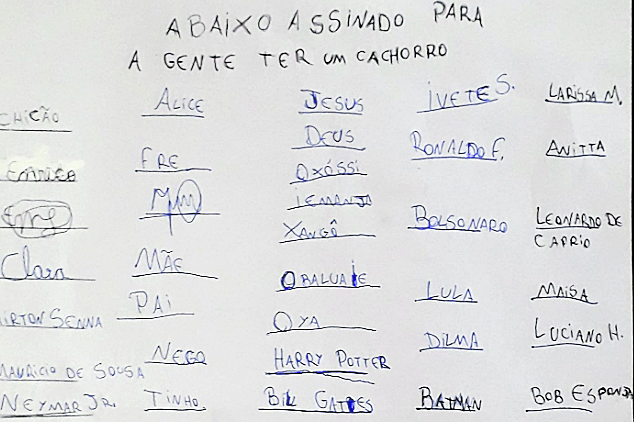 ABAIXO ASSINADO PARA
A GENTE TER UM CACHORRO
CHICÃO
ALICE
JESUS
IVETE S.
LARISSA M.
DEUS
RONALDO F.
ANITTA
FRE
OXÓSSI
IEMANJA
BOLSONARO
LEONARDO DE
CAPRIO
XANGÔ
Clara
MÃE
OBALUAIE
LULA
MAISA
PAI
AIRTON SENNA
OYA
DILMA
LUCIANO H.
NEGO
HARRY POTTER
MAURICIO DE SOUSA
NEYMAR JR.
TINHO
BILL GATES
BATMAN
BOB ESPONJA